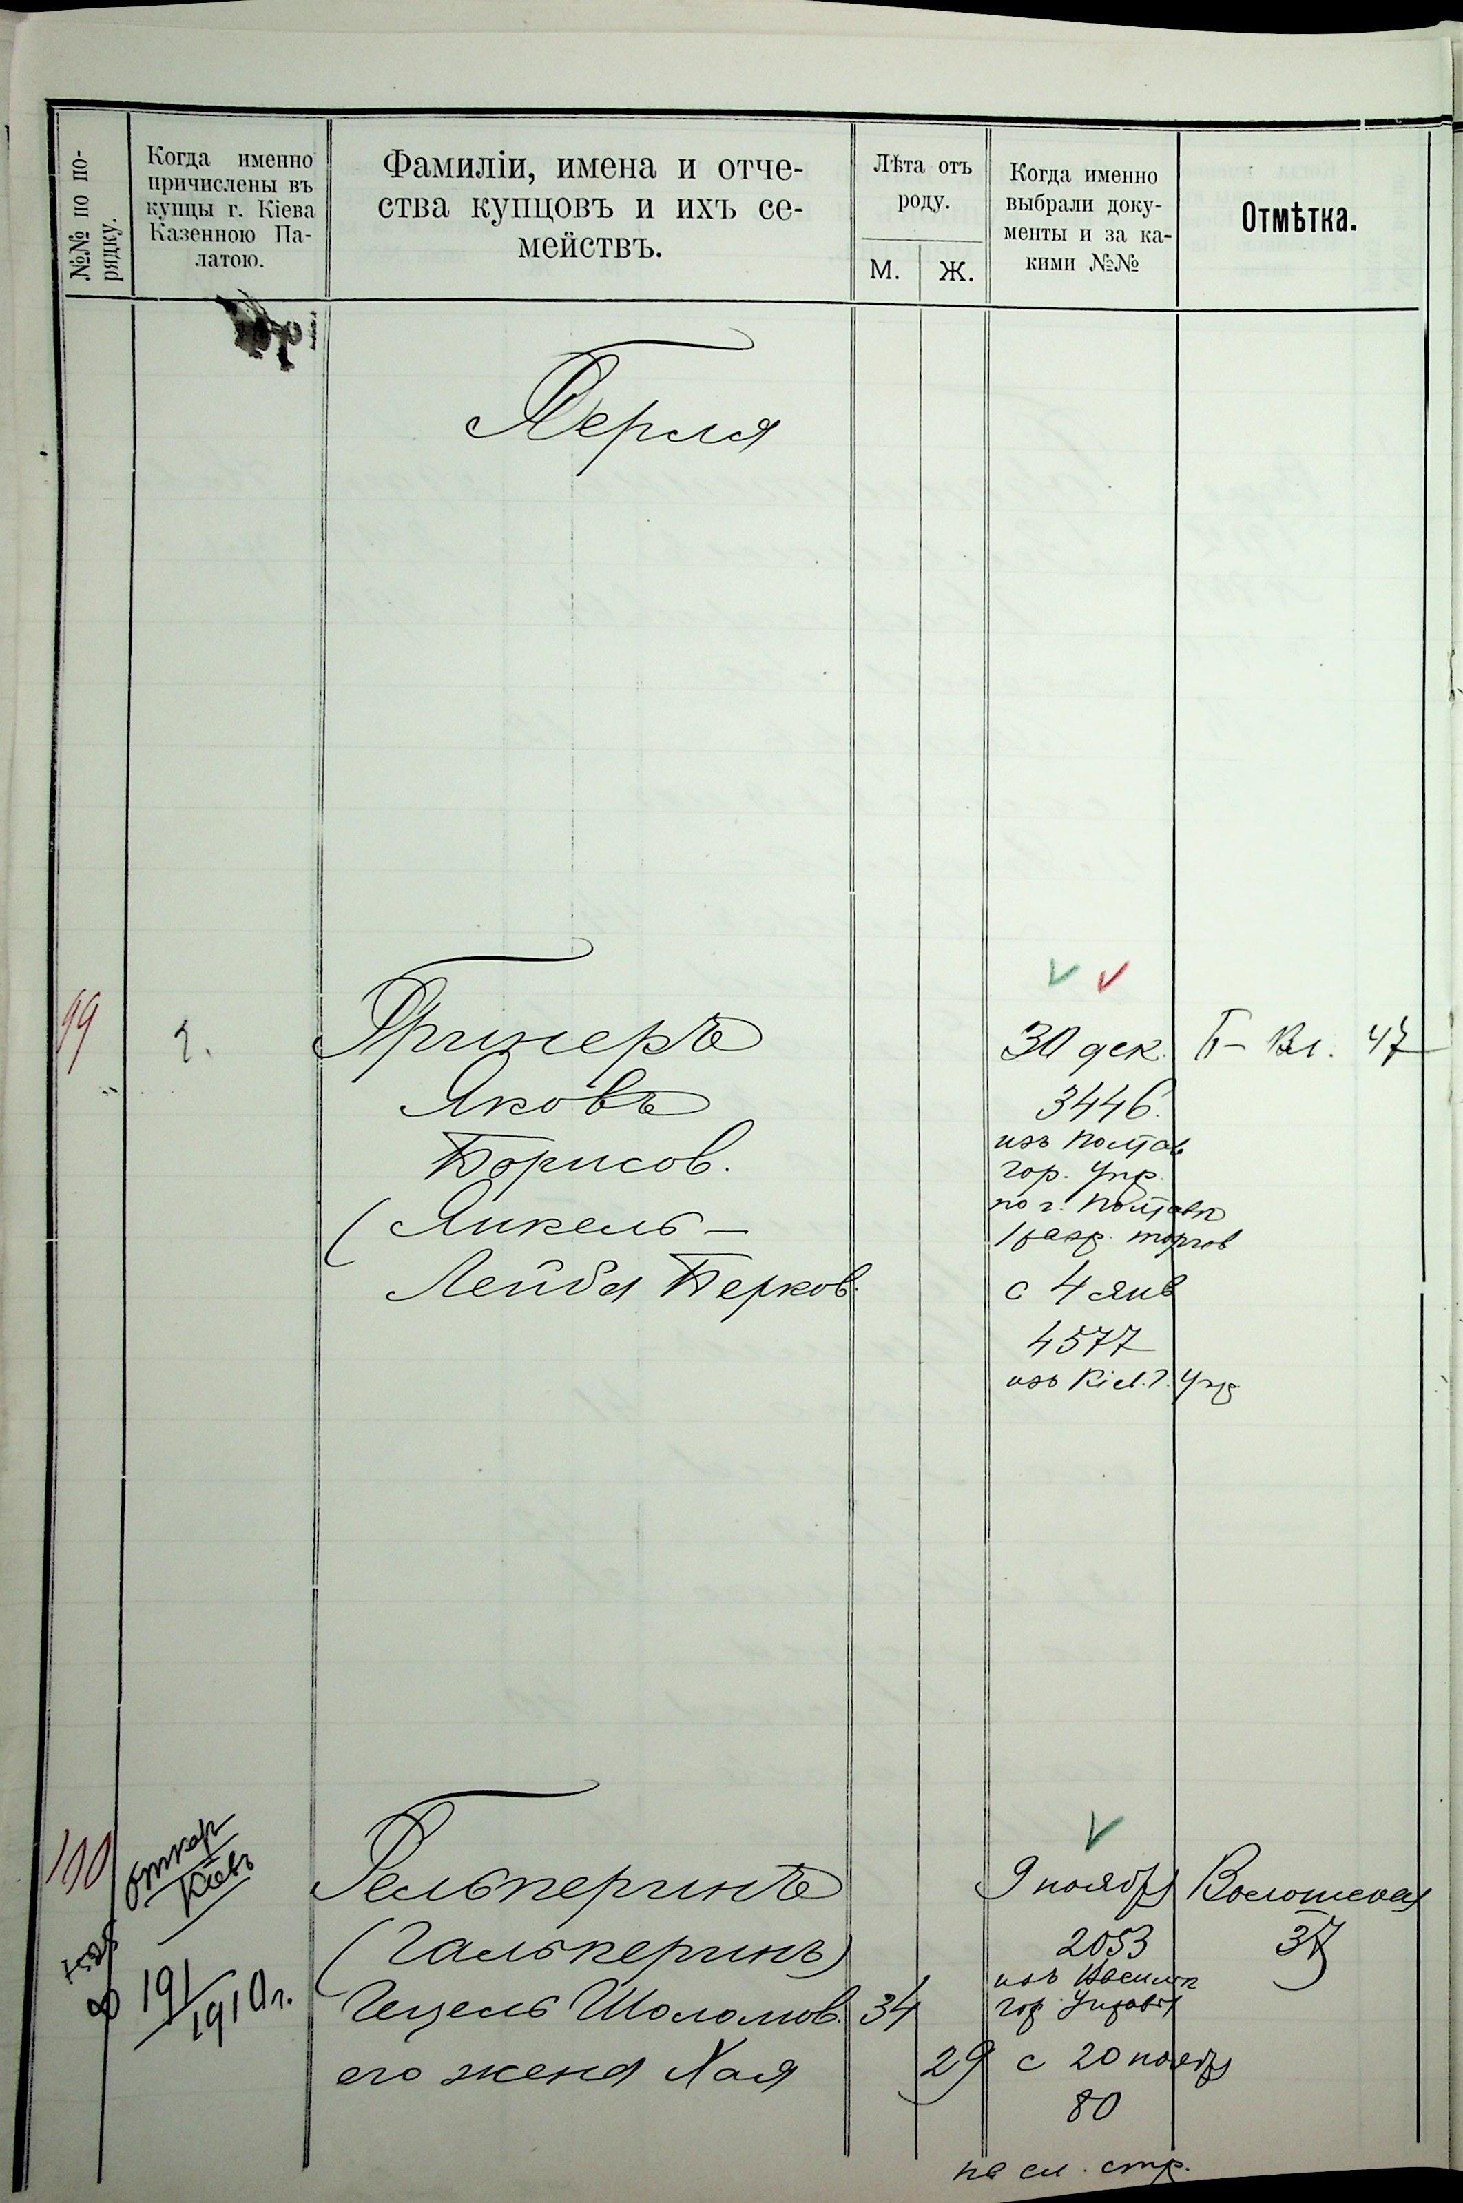 №№ по по-
рядку.
Когда именно
причислены въ
купцы г. Кіева
Казенною Па-
латою.
Фамиліи, имена и отче-
ства купцовъ и ихъ се-
мействъ.
Лѣта отъ
роду.
М.
Ж.
Когда именно
выбрали доку-
менты и за ка-
кими №№
Отмѣтка.
Берля
99
2.
Гринеръ
Яковъ
Борисов.
(Янкель-
Лейба Берков.
30 дек.
3446.
изъ Полтав
гор. Упр.
по г. Полтавѣ
1 разр. торгов
с 4 янв
4577
изъ Кіев. г. Упр
Б- Вл. 47
100
откар
Кіевъ
191
1910 г.
Гельперинъ
(Гальперинъ)
Гецель Шоломов.
34
его жена Хая
29
9 ноября
2053
изъ Васильк
гор. Управы
с 20 ноября
80
Волошская
37
на сл. стр.